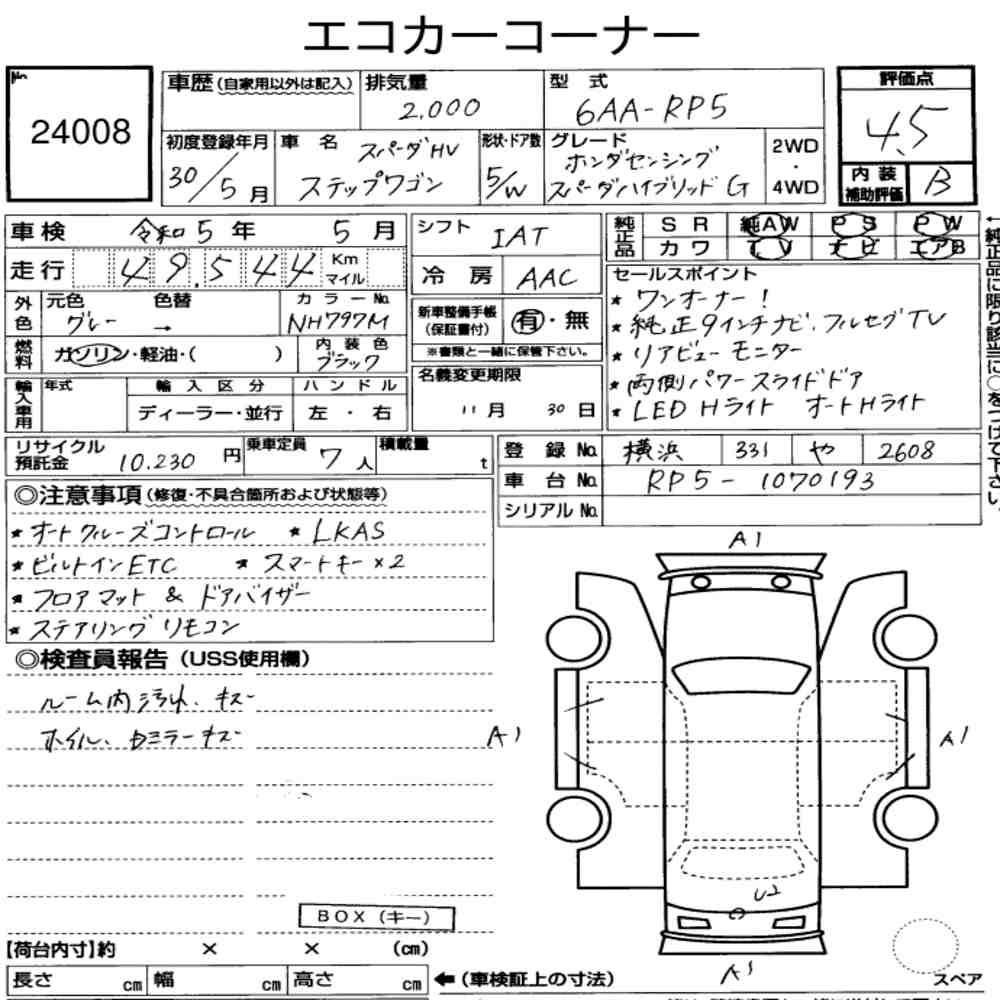 エコカーコーナー
No.
24008
車歴(自家用以外は記入)
排気量
2.000
型式
6AA-RP5
評価点
4.5
初度登録年月
30/5月
車名
スパーダHV
ステップワゴン
形状・ドア数
5/W
グレード
ホンダセンシング
スパーダハイブリッドG
2WD
・
4WD
内装
補助評価
B
車検 令和5年 5月
シフト IAT
純正品
SR 純AW PS PW
カワ TV ナビ エアB
走行 49,544 Km
マイル
冷房 AAC
セールスポイント
* ワンオーナー!
* 純正9インチナビ.フルセグTV
* リアビューモニター
* 両側パワースライドドア
* LED Hライト オートHライト
外色
元色 色替 カラーNo.
グレー → NH797M
新車整備手帳
(保証書付)
有・無
※書類と一緒に保管下さい。
燃料
ガソリン・軽油・( )
内装色
ブラック
名義変更期限
11月 30日
輸入車用
年式 輸入区分 ハンドル
ディーラー・並行 左・右
←純正品に限り該当に○をつけて下さい。
リサイクル
預託金 10.230円
乗車定員
7人
積載量
t
登録No. 横浜 331 や 2608
車台No. RP5-1070193
シリアルNo.
◎注意事項(修復・不具合箇所および状態等)
* オートクルーズコントロール * LKAS
* ビルトインETC * スマートキー×2
* フロアマット & ドアバイザー
* ステアリングリモコン
◎検査員報告(USS使用欄)
ルーム内汚れ、キズ
ホイル、Dミラーキズ
A1
A1
A1
U2
A1
BOX(キー)
【荷台内寸】約 × × (cm)
長さ cm 幅 cm 高さ cm
←(車検証上の寸法)
スペア